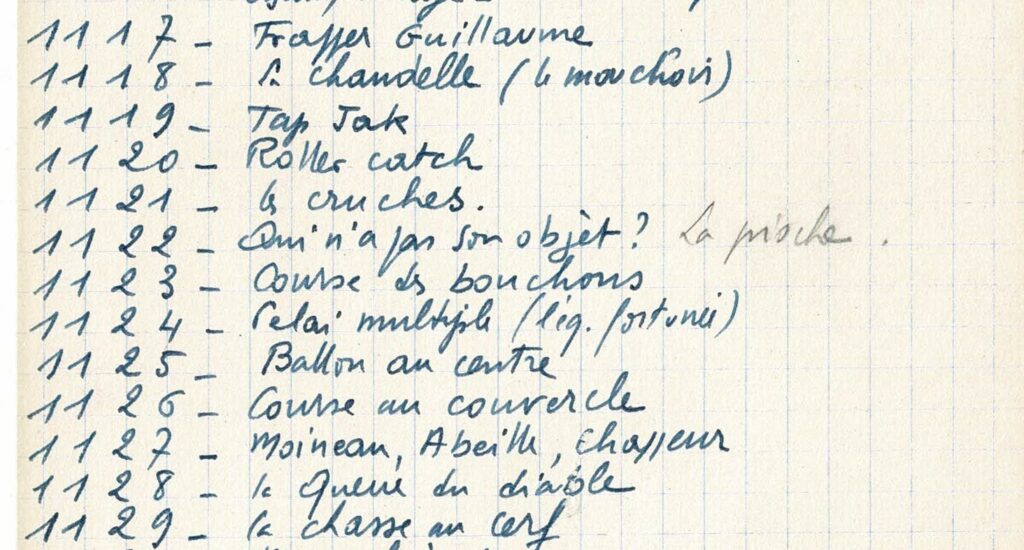 1117 - Frapper Guillaume
1118 - la chandelle (le mouchoir)
1119 - Tap Tak
1120 - Roller catch
1121 - les cruches.
1122 - Qui n'a pas son objèt ? La pioche .
1123 - Course des bouchons
1124 - relai multiple (lég. fortunée)
1125 - Ballon au centre
1126 - Course au couvercle
1127 - Moineau, Abeille, Chasseur
1128 - la queue du diable
1129 - la chasse au cerf